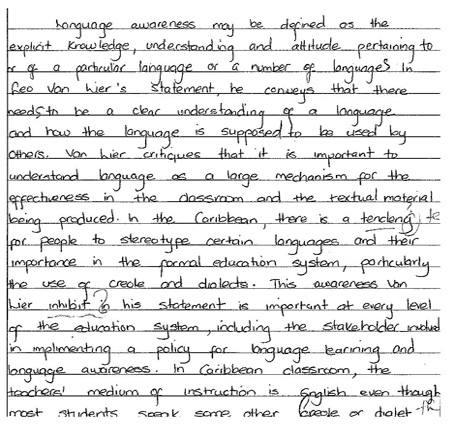 Language awareness may be defined as the
explicit knowledge, understanding and attitude pertaining to
r of a particular language or a number of languages In
Leo Van Lier's statement, he conveys that there
needs to be a clear understanding of a language
and how the language is supposed to be used by
others. Van Lier critiques that it is important to
understand language as a large mechanism for the
effectiveness in the classroom and the textual material
being produced. In the Caribbean, there is a tendency te
for people to stereotype certain languages and their
importance in the formal education system, particularly
the use of creole and dialects. This awareness Van
Lier inhibit ? in his statement is important at every level
of the education system, including the stakeholder involved
in implimenting a policy for language learining and
language awareness. In Caribbean classroom, the
teachers' medium of instruction is English even though
most students speak some other Creole or dialet